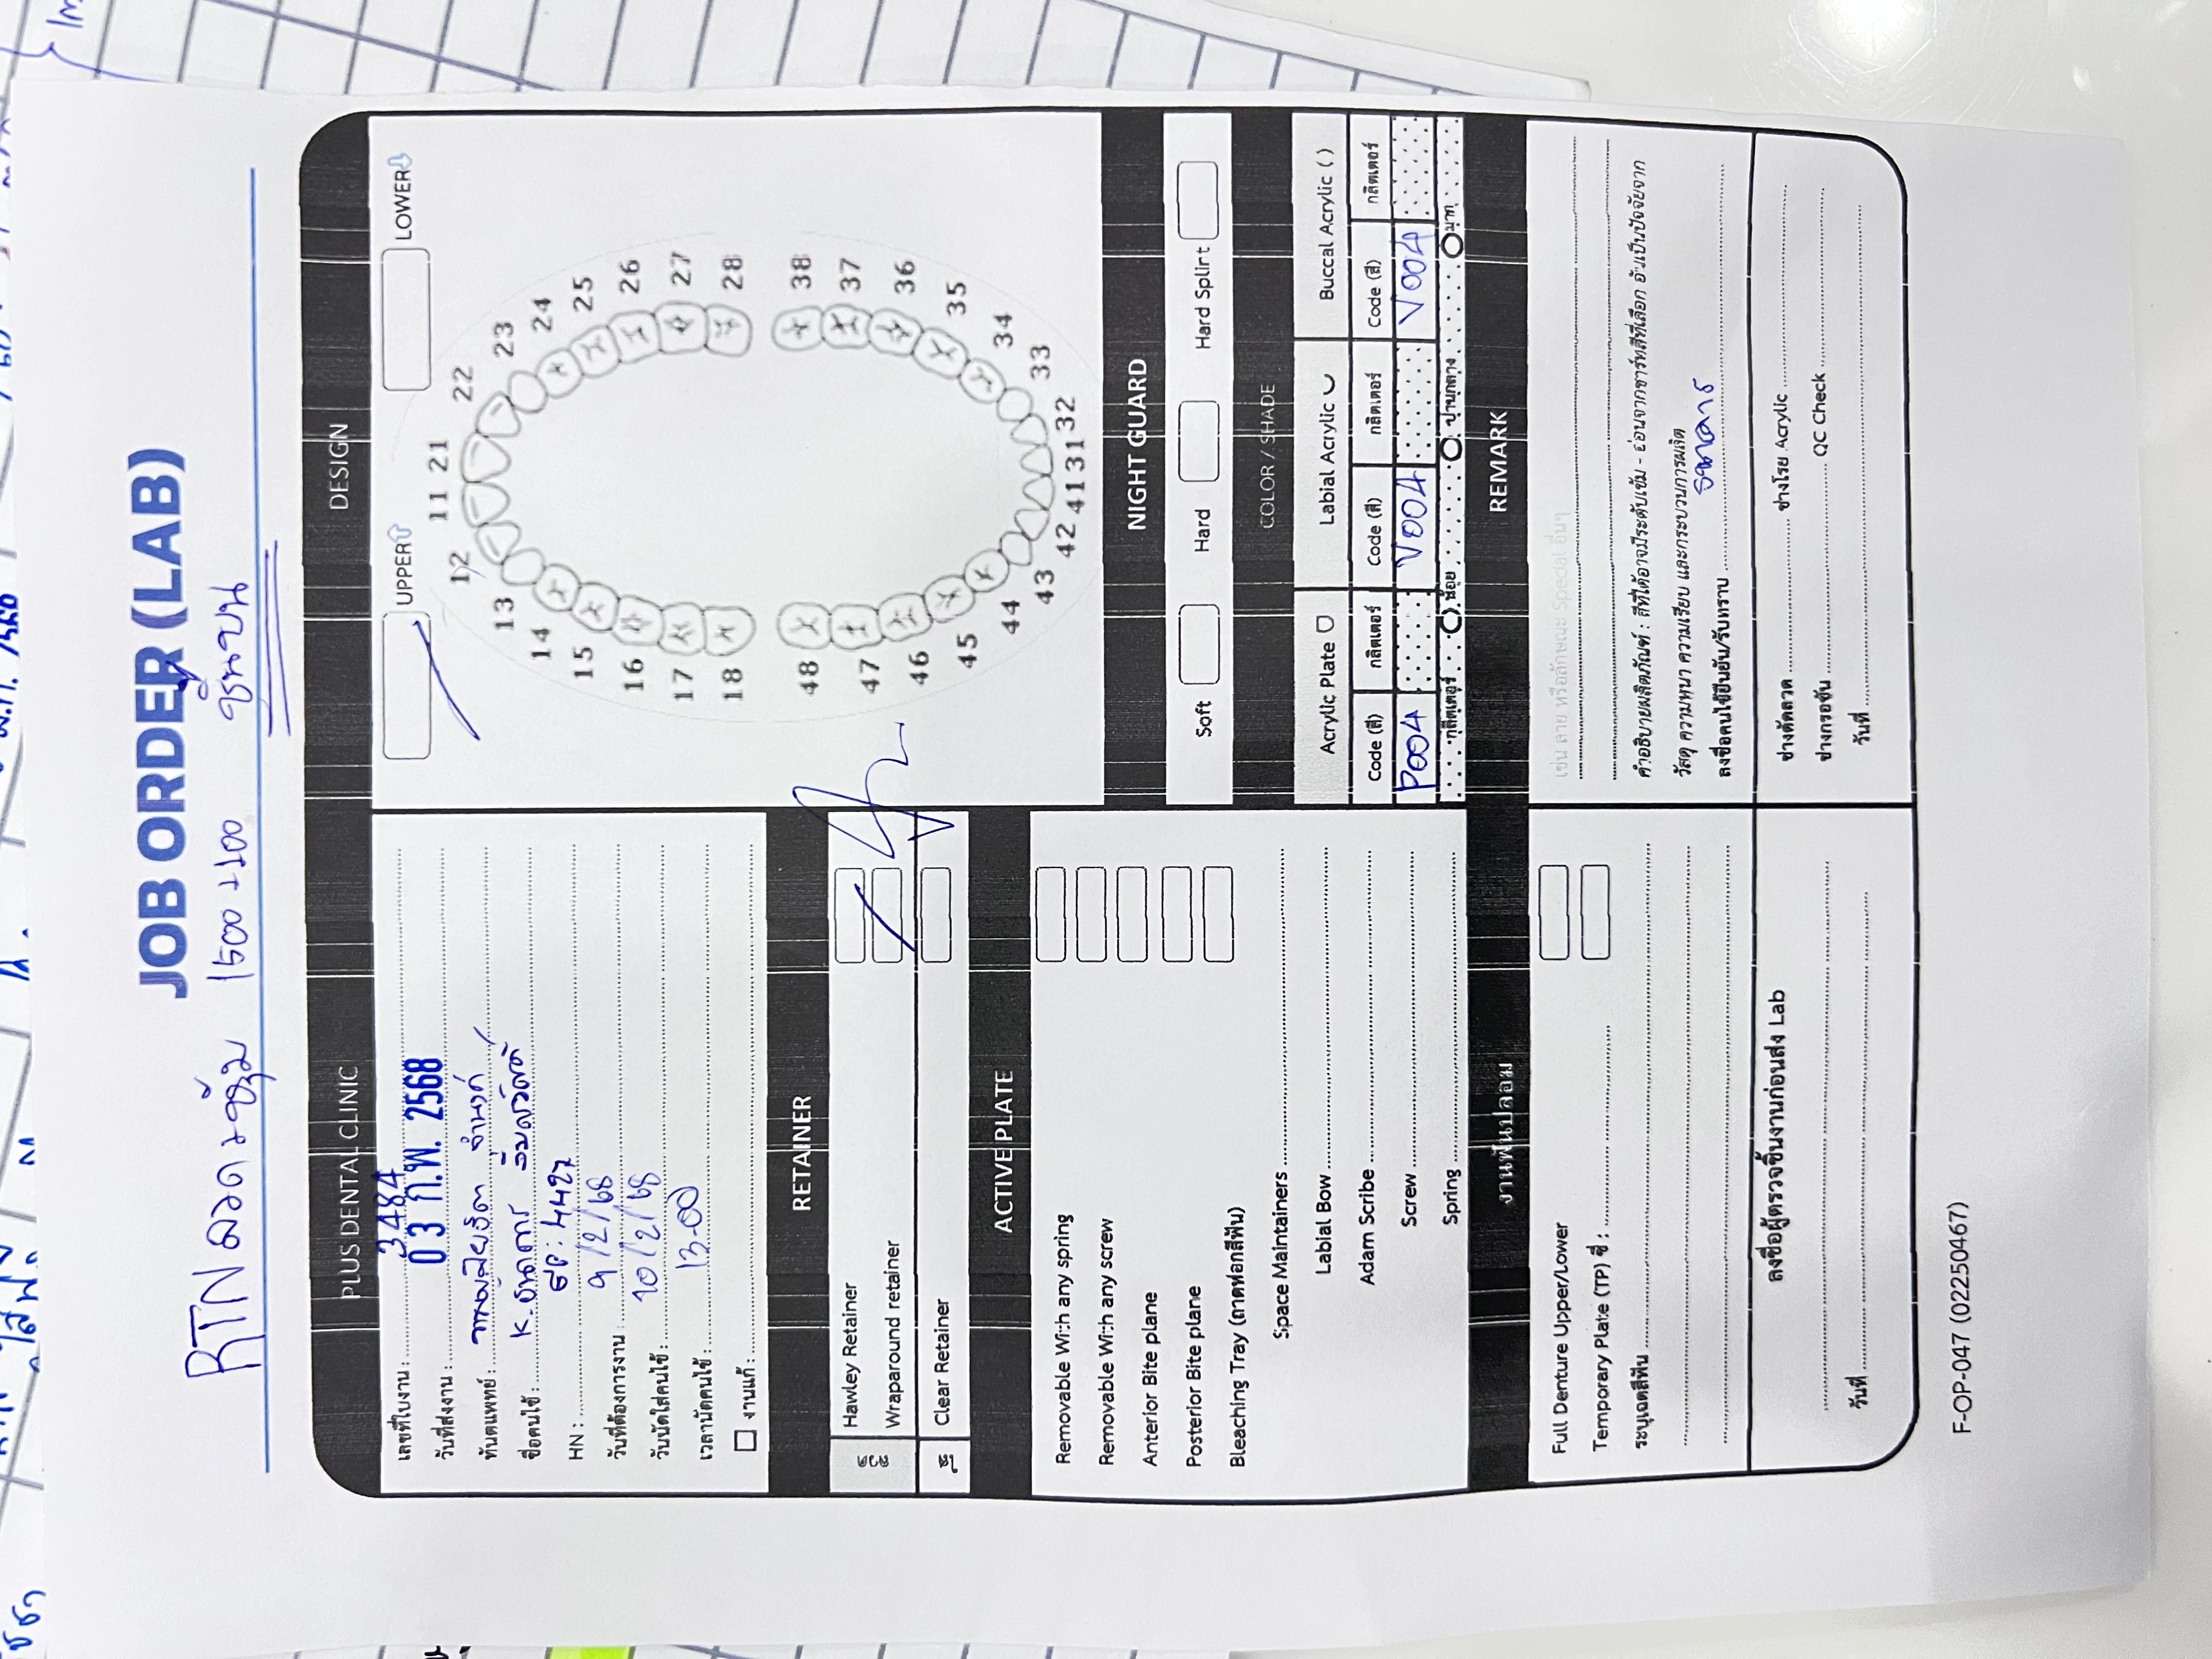 JOB ORDER (LAB)
RTN ลวด + หุ้ม 1500 + 200 ชิ้นบน
PLUS DENTAL CLINIC
เลขที่ใบงาน : 3484
วันที่ส่งงาน : 03 ก.พ. 2568
ทันตแพทย์ :
ชื่อคนไข้ : K.
HN : 4427
วันที่ต้องการงาน : 9/2/68
วันนัดใส่คนไข้ : 10/2/68
เวลานัดคนไข้ : 13.00
งานแก้ :
RETAINER
Hawley Retainer
Wraparound retainer
Clear Retainer
ACTIVE PLATE
Removable With any spring
Removable With any screw
Anterior Bite plane
Posterior Bite plane
Bleaching Tray (ถาดฟอกสีฟัน)
Space Maintainers
Labial Bow
Adam Scribe
Screw
Spring
งานฟันปลอม
Full Denture Upper/Lower
Temporary Plate (TP) ซี่ :
ระบุเฉดสีฟัน
ลงชื่อผู้ตรวจชิ้นงานก่อนส่ง Lab
วันที่
DESIGN
UPPER LOWER
11 21
12 22
13 23
14 24
15 25
16 26
17 27
18 28
48 38
47 37
46 36
45 35
44 34
43 33
42 41 31 32
NIGHT GUARD
Soft Hard Hard Splint
COLOR / SHADE
Acrylic Plate Labial Acrylic Buccal Acrylic ( )
Code (สี) กลิตเตอร์ Code (สี) กลิตเตอร์ Code (สี) กลิตเตอร์
P004 V004 V004
กลิตเตอร์ น้อย ปานกลาง มาก
REMARK
เช่น ลาย หรือลักษณะ Special อื่นๆ
คำอธิบายผลิตภัณฑ์ : สีที่ได้อาจมีระดับเข้ม - อ่อนจากชาร์ทสีที่เลือก อันเป็นปัจจัยจาก
วัสดุ ความหนา ความเรียบ และกระบวนการผลิต
ลงชื่อคนไข้ยืนยัน/รับทราบ
ช่างดัดลวด ช่างโรย Acrylic
ช่างกรอขัน QC Check
วันที่
F-OP-047 (02250467)